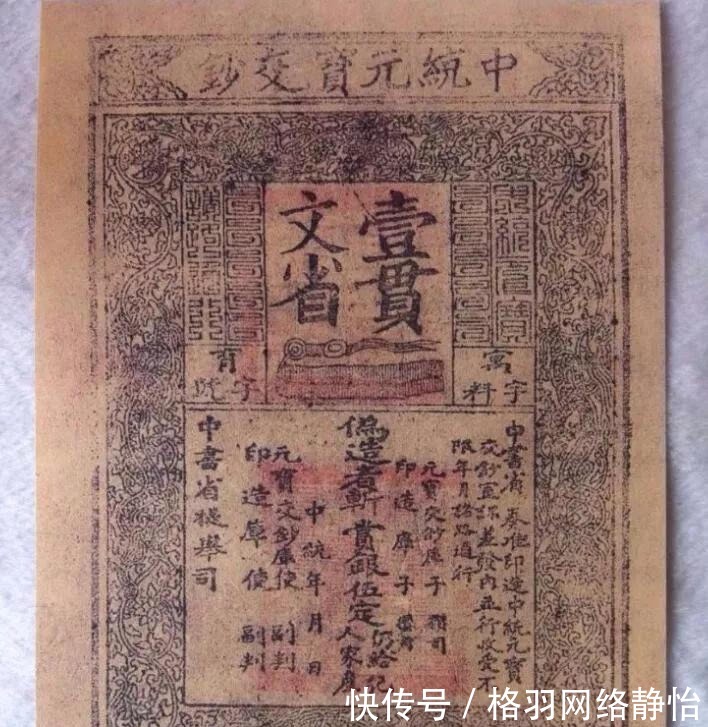 中統元寶交鈔
中統元寶
壹貫
文省
諸路通行
寓
字料
育
字號
中書省奏准印造中統元寶
交鈔宣課差發內並行收受不
限年月諸路通行
元寶交鈔庫子攢司
印造庫子攢司
偽造者斬賞銀伍定仍給犯
人家產
中統年月日
元寶交鈔庫使副判
印造庫使副判
中書省提舉司
快传号 / 格羽网络静怡